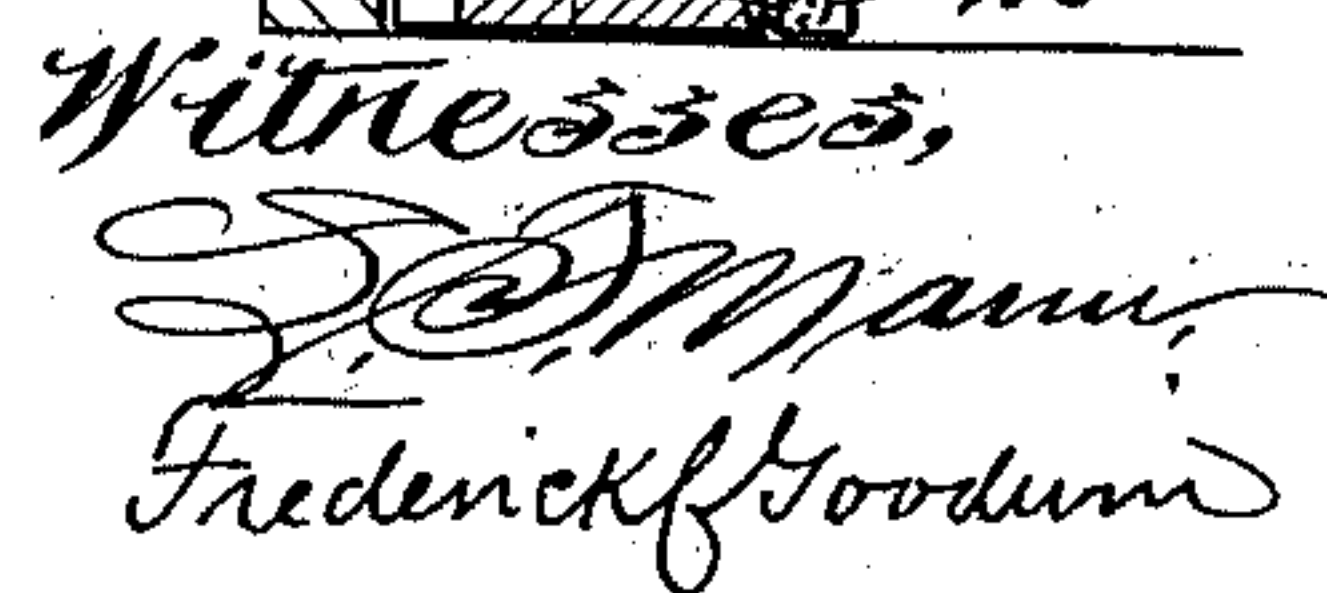 Witnesses,
Mann,
Frederick Goodwin